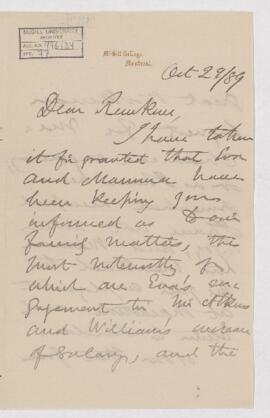 McGILL UNIVERSITY
ARCHIVES
ACC. NO.
REF.
McGill College,
Montreal.
Oct 29/89
Dear
I have taken
it for granted that Eva
and Mamma have
been keeping you
informed as to our
family matters, the
most noteworthy of
which are Eva's en
gagement to Mr Atkin
and William's increase
of Salary, and the